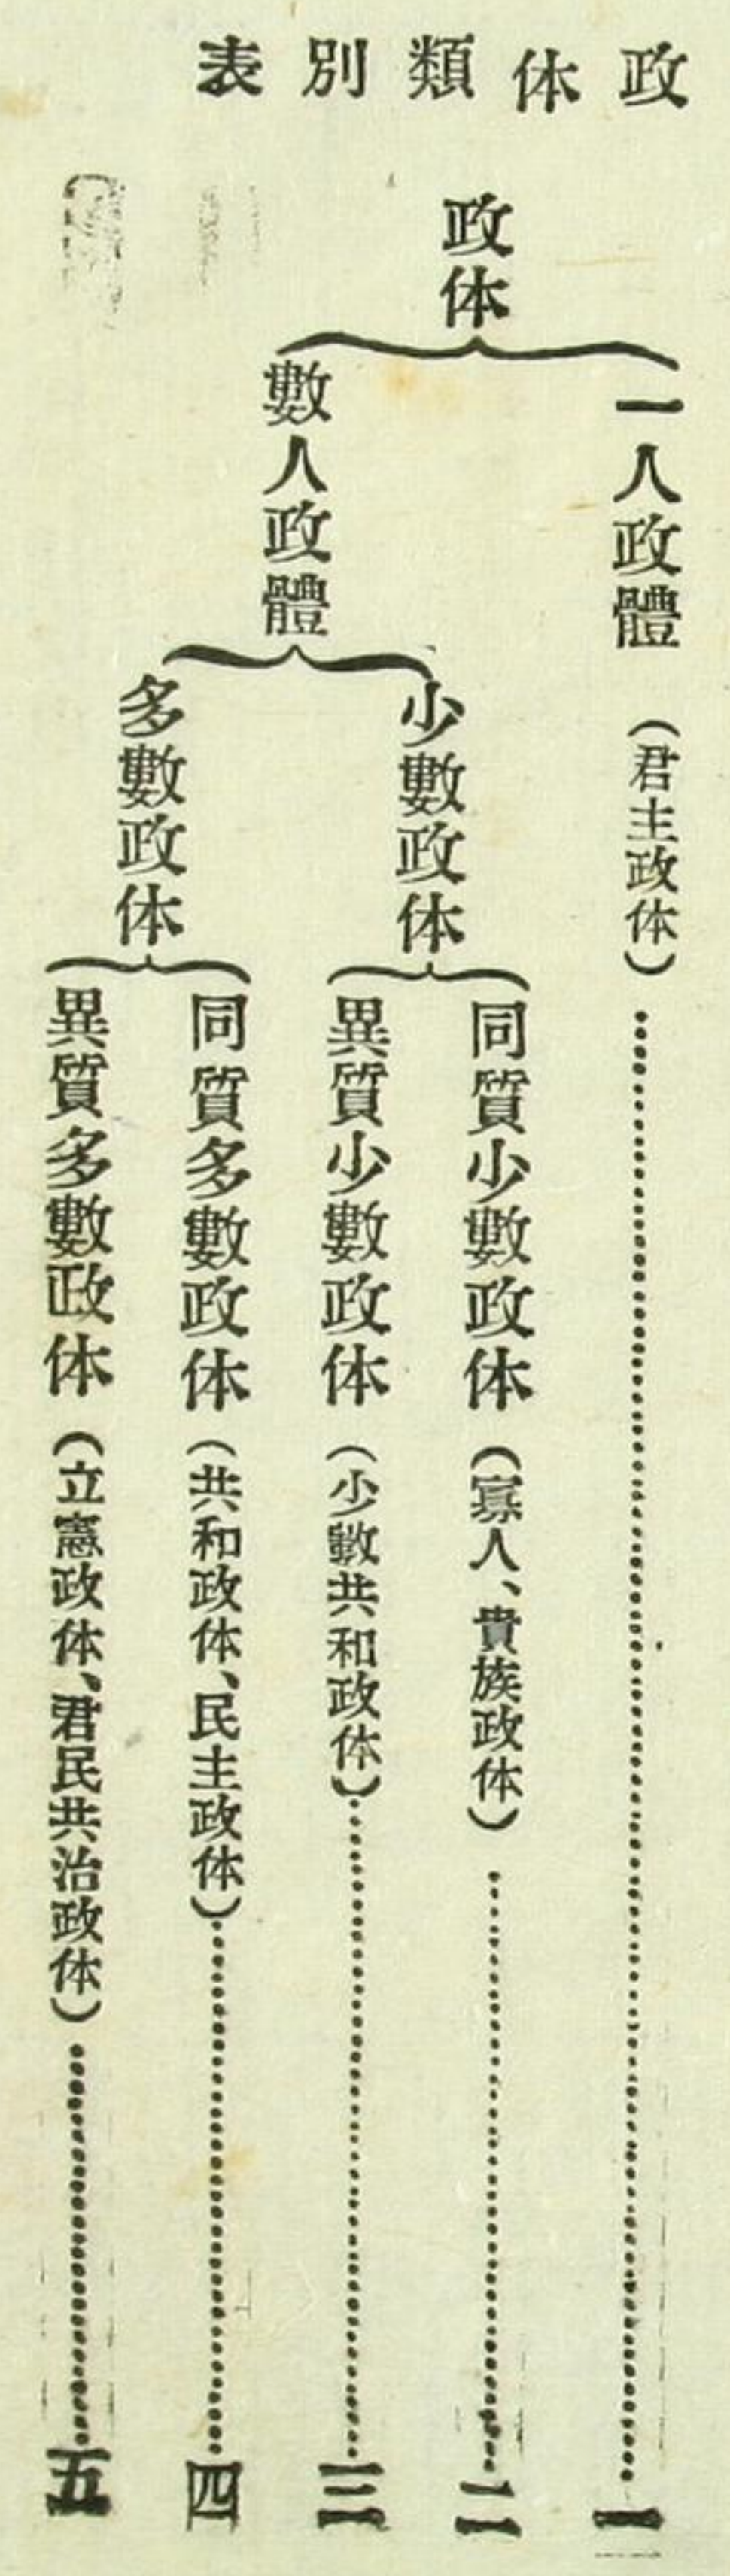 政体類別表
政体
一人政體（君主政体）…………一
數人政體
少數政体
同質少數政体（寡人、貴族政体）…………二
異質少數政体（少數共和政体）…………三
多數政体
同質多數政体（共和政体、民主政体）…………四
異質多數政体（立憲政体、君民共治政体）…………五